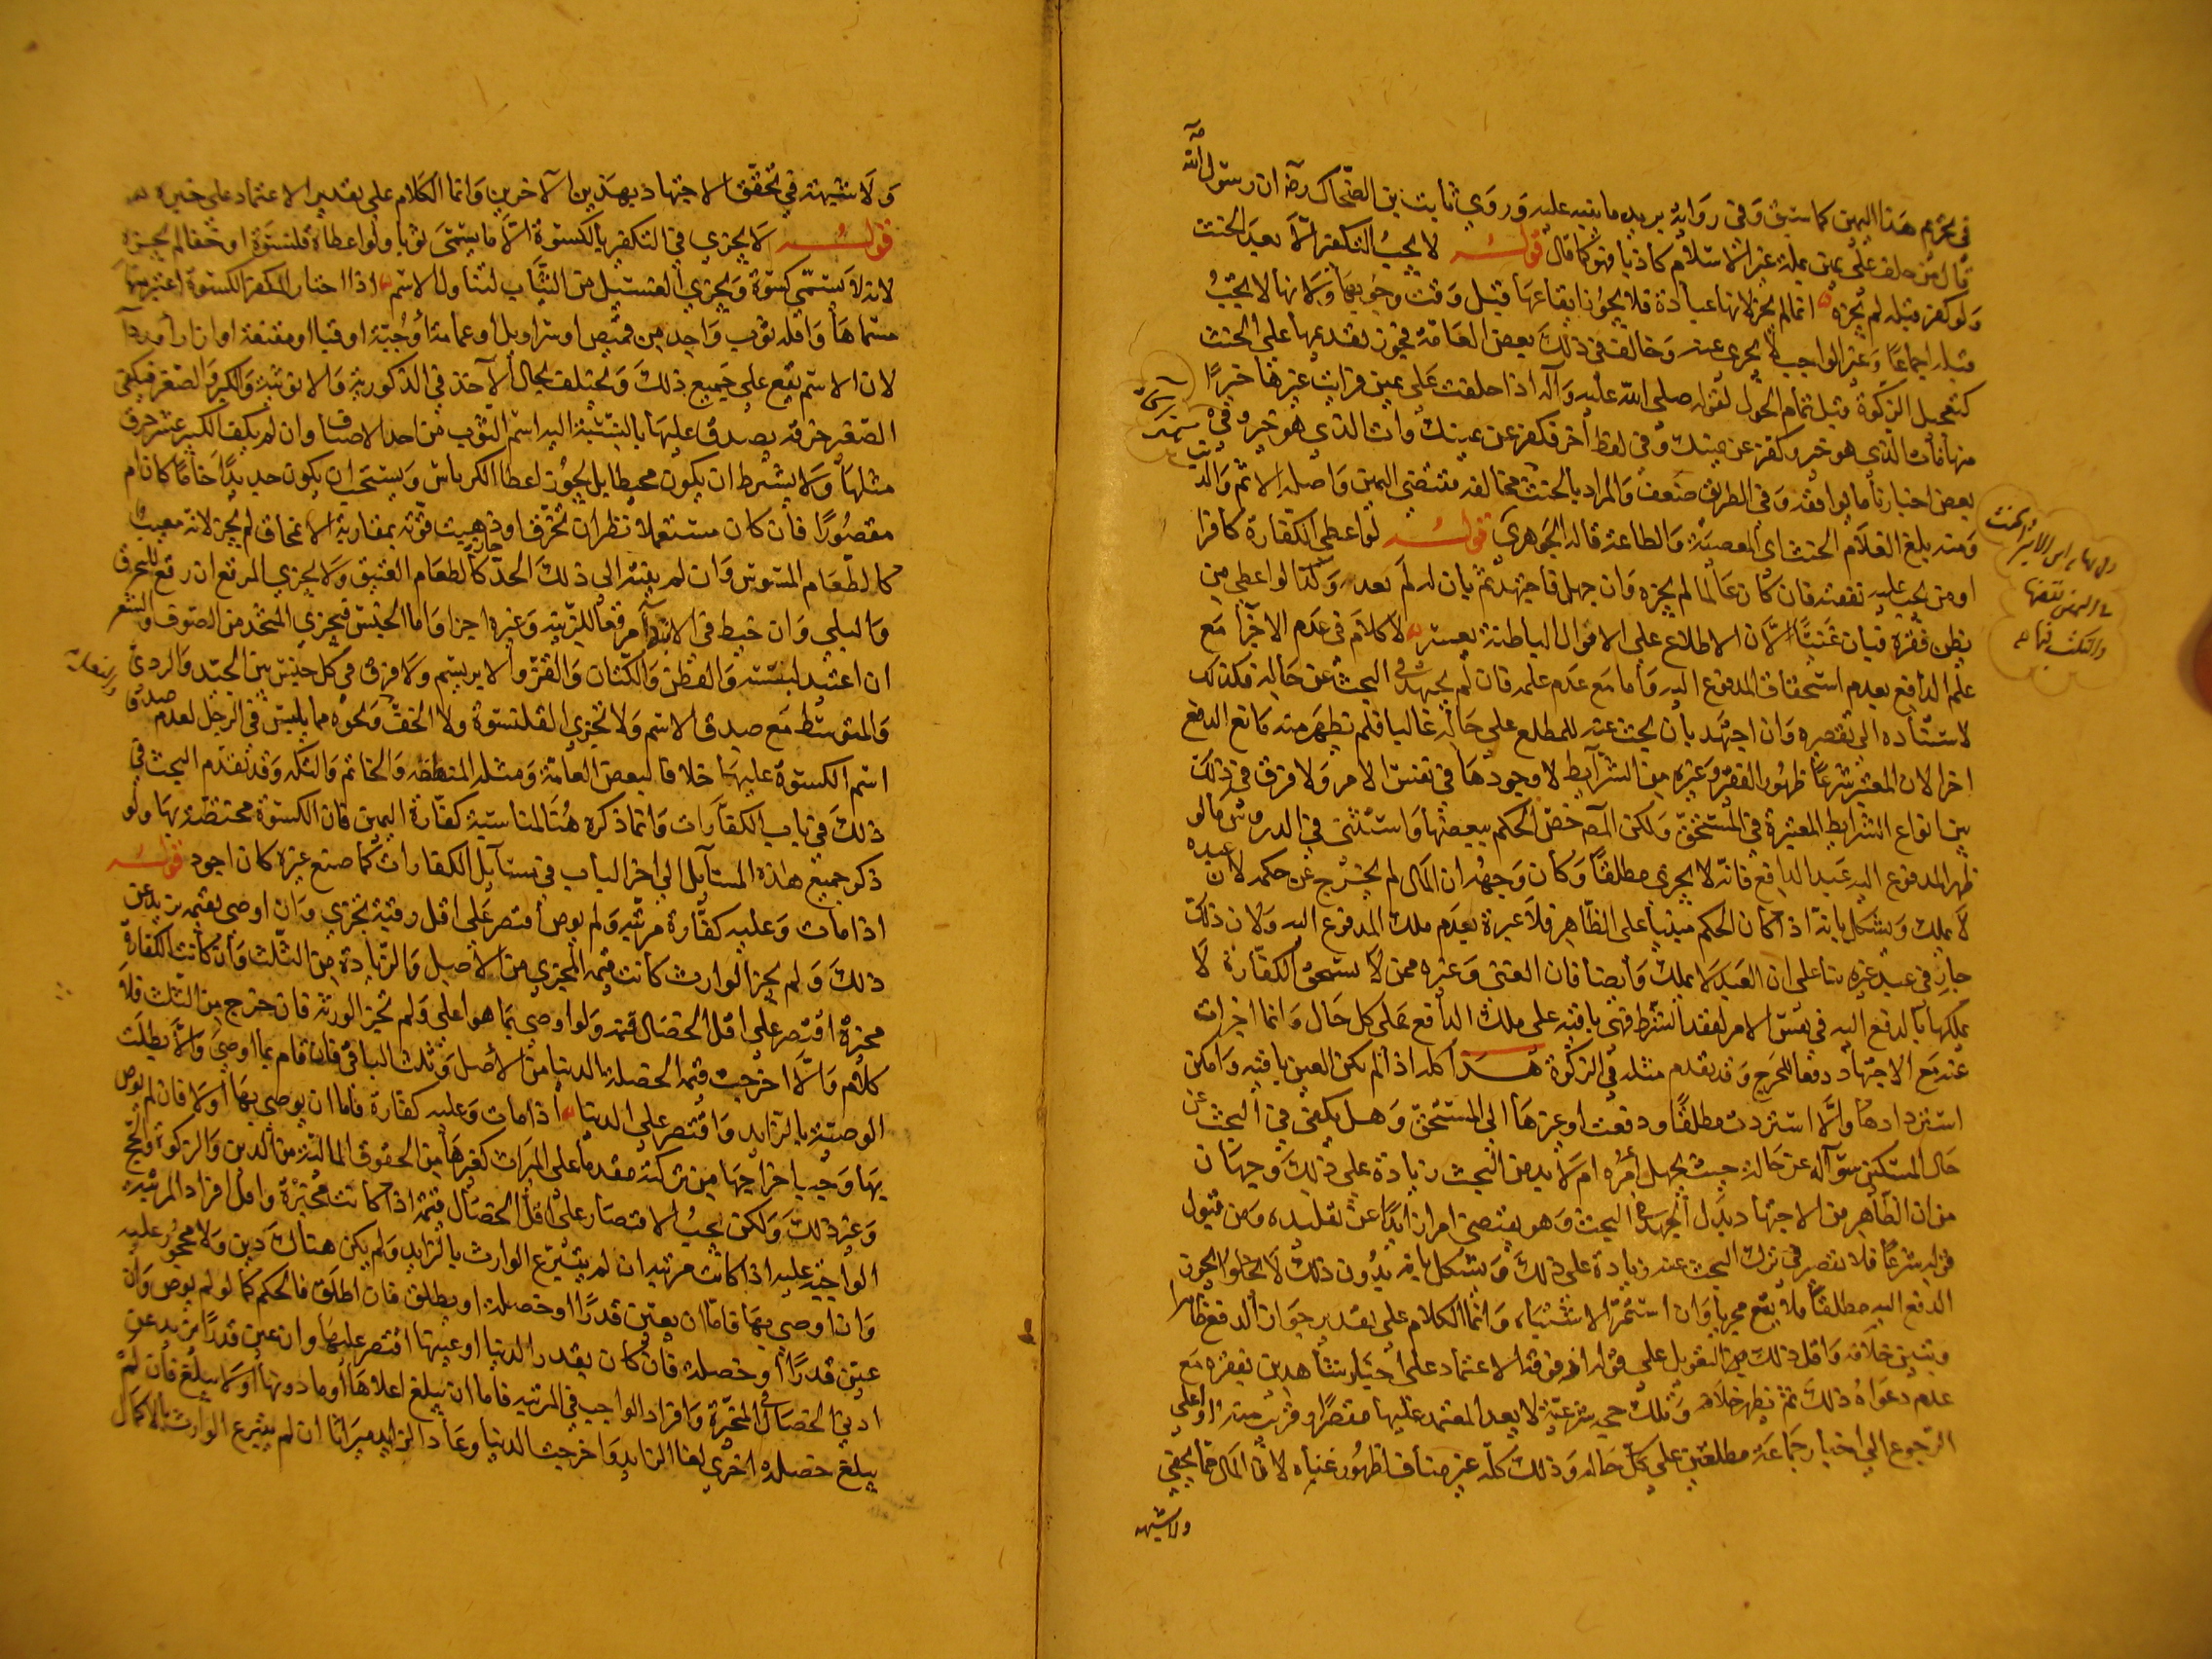 في تحريم هذا اليمين كما سبق وفي رواية بريده ما ينبه عليه وروى ثابت بن الضحاك رضه ان رسول الله صه
قال من حلف على يمين بملة غير الاسلام كاذبا فهو كما قال قوله لا يجب التكفير الا بعد الحنث
ولو كفر قبله لم يجزه انما لم يجز لانها عبادة فلا يجوز ايقاعها قبل وقت وجوبها ولانها لا تجب
قبله اجماعا وغير الواجب لا يجزى عنه وخالف في ذلك بعض العامة فجوز تقديمها على الحنث
كتعجيل الزكوة قبل تمام الحول لقوله صلى الله عليه وآله اذا حلفت على يمين فرايت غيرها خيرا
منها فأت الذي هو خير وكفر عن يمينك وفي لفظ آخر فكفر عن يمينك وات الذي هو خير وفي
بعض اخبارنا ما يوافقه وفي الطريق ضعف والمراد بالحنث مخالفة مقتضى اليمين واصله الاثم والذنب
ومنه بلغ الغلام الحنث اى المعصية والطاعة قاله الجوهري قوله لو اعطى الكفارة كافرا
او من تجب عليه نفقته فان كان عالما لم يجزه وان جهل فاجتهد ثم بان له لم يعد وكذا لو اعطى من
يظن فقره فبان غنيا لان الاطلاع على الاحوال الباطنة يعسر لا كلام في عدم الاجزآء مع
علم الدافع بعدم استحقاق المدفوع اليه واما مع عدم علمه فان لم يجتهد في البحث عن حاله فكذلك
لاستناده الى تقصيره وان اجتهد بان بحث عنه للمطلع على حاله غالبا فلم يظهر منه مانع الدفع
اجزا لان المعتبر شرعا ظهور الفقر وغيره من الشرآيط لا وجودها في نفس الامر ولا فرق في ذلك
بين انواع الشرايط المعتبرة في المستحق ولكن المص خص الحكم ببعضها واستثنى في الدروس ما لو
ظهر المدفوع اليه عبد الدافع فانه لا يجزي مطلقا وكان وجهه ان المال لم يخرج عن حكمه لان عبده
لا يملك ويشكل بانه اذا كان الحكم مبنيا على الظاهر فلا عبرة بعدم ملك المدفوع اليه ولان ذلك
جار في عبد غيره بنا على ان العبد لا يملك وأيضا فان الغنى وغيره ممن لا يستحق الكفارة لا
يملكها بالدفع اليه في نفس الامر لفقد الشرط فهى باقية على ملك الدافع على كل حال وانما اجزات
عنه مع الاجتهاد دفعا للحرج وقد تقدم مثله في الزكوة هذا كله اذا لم تكن العين باقية وامكن
استردادها والا استردت مطلقا ودفعت او غيرها الى المستحق وهل يكفى في البحث عن
حال المسكين سؤاله عن حاله حيث يجهل أمره ام لا بد من البحث زيادة على ذلك وجهان
من ان الظاهر من الاجتهاد بذل الجهد في البحث وهو يقتضى امرا زايدا عن تقليده ومن قبول
قوله شرعا فلا تقصير في ترك البحث عنه زيادة على ذلك ويشكل بانه بدون ذلك لا يخلو الجوز
الدفع اليه مطلقا فلا يقع مجزيا وان استمر الاشتباه وانما الكلام على تقدير جواز الدفع ظاهرا
وتبين خلافه واقل ذلك التعويل على قوله وفوقه الاعتماد على اخبار شاهدين بفقره مع
عدم دعواه ذلك ثم يظهر خلافه وتلك حجج شرعية لا يعد المعتمد عليها مقصرا وقريب منه او اعلى
الرجوع الى اخبار جماعة مطلعين على كل حاله وذلك كله غير مناف لظهور غناه لان المال مما يخفى
ولا شبهه
ولا شبهة في تحقق الاجتهاد بهذين الآخرين وانما الكلام على تقدير الاعتماد على خبره
قوله لا يجزي في التكفير بالكسوة الا ما يسمى ثوبا ولو اعطاه قلنسوة او خفا لم يجزه
لانه لا يسمى كسوة ويجزي الغسيل من الثياب لتناول الاسم اذا اختار المكفر الكسوة اعتبر فيها
مسماها واقله ثوب واحد من قميص او سراويل او عمامة أو جبة او قبا او مقنعة او ازار او ردآ
لان الاسم يقع على جميع ذلك ويختلف بحال الآخذ في الذكورية والانوثية والكبر والصغر فيكفى
الصغير خرقة يصدق عليها بالنسبة اليه اسم الثوب من احد الاصناف وان لم يكف الكبير عشر خرق
مثلها ولا يشترط ان يكون مخيطا بل يجوز اعطا الكرباس ويستحب ان يكون جديدا خاما كان ام
مقصورا فان كان مستعملا نظر ان تخرق او ذهبت قوته بمقاربة الانمحاق لم يجز لانه معيب
كالطعام المسوس وان لم ينته الى ذلك الحد جاز كالطعام العتيق ولا يجزي المرقع ان رقع للخرق
والبلى وان خيط في الابتدآ مرقعا للزينة وغيره اجزا واما الجنس فيجزي المتخذ من الصوف والشعر
ان اعتيد لبسه والقطن والكتان والقز والابريسم ولا فرق في كل جنس بين الجيد والردى
والمتوسط مع صدق الاسم ولا تجزي القلنسوة ولا الخف ونحوه مما يلبس في الرجل لعدم صدق
اسم الكسوة عليها خلافا لبعض العامة ومثله المنطقة والخاتم والتكه وقد تقدم البحث في
ذلك في باب الكفارات وانما ذكره هنا لمناسبة كفارة اليمين فان الكسوة مختصة بها ولو
ذكر جميع هذه المسآيل الى اخر الباب في مسآيل الكفارات كما صنع غيره كان اجود قوله
اذا مات وعليه كفارة مرتبة ولم يوص اقتصر على اقل رقبة تجزي وان اوصى بقيمة تزيد عن
ذلك ولم يجز الوارث كانت قيمة المجزي من الاصل والزيادة من الثلث وان كانت الكفارة
مخيرة اقتصر على اقل الخصال قيمة ولو اوصى بما هو اعلى ولم تجز الورثة فان خرج من الثلث فلا
كلام والا اخرجت قيمة الخصلة الدنيا من الاصل وثلث الباقى فان قام بما اوصى والا بطلت
الوصية بالزايد واقتصر على الدنيا اذا مات وعليه كفارة فاما ان يوصي بها أولا فان لم يوص
بها وجب اخراجها من تركته مقدما على الميراث كغيرها من الحقوق المالية من الدين والزكوة والحج
وغير ذلك ولكن يجب الاقتصار على اقل الخصال قيمة اذا كانت مخيرة واقل افراد المرتبة
الواجبة عليه اذا كانت مرتبة ان لم يتبرع الوارث بالزايد ولم يكن هناك دين ولا محجور عليه
وان اوصى بها فاما ان يعين قدرا او خصلة او يطلق فان اطلق فالحكم كما لو لم يوص وان
عين قدرا أو خصلة فان كان بقدر الدنيا او عينها اقتصر عليها وان عين قدرا يزيد عن
ادنى الخصال في المخيرة وافراد الواجب في المرتبة فاما ان يبلغ اعلاها أو ما دونها أو لا يبلغ فان لم
يبلغ خصلة اخرى لغا الزايد واخرجت الدنيا وعاد الزايد ميراثا ان لم يتبرع الوارث بالاكمال